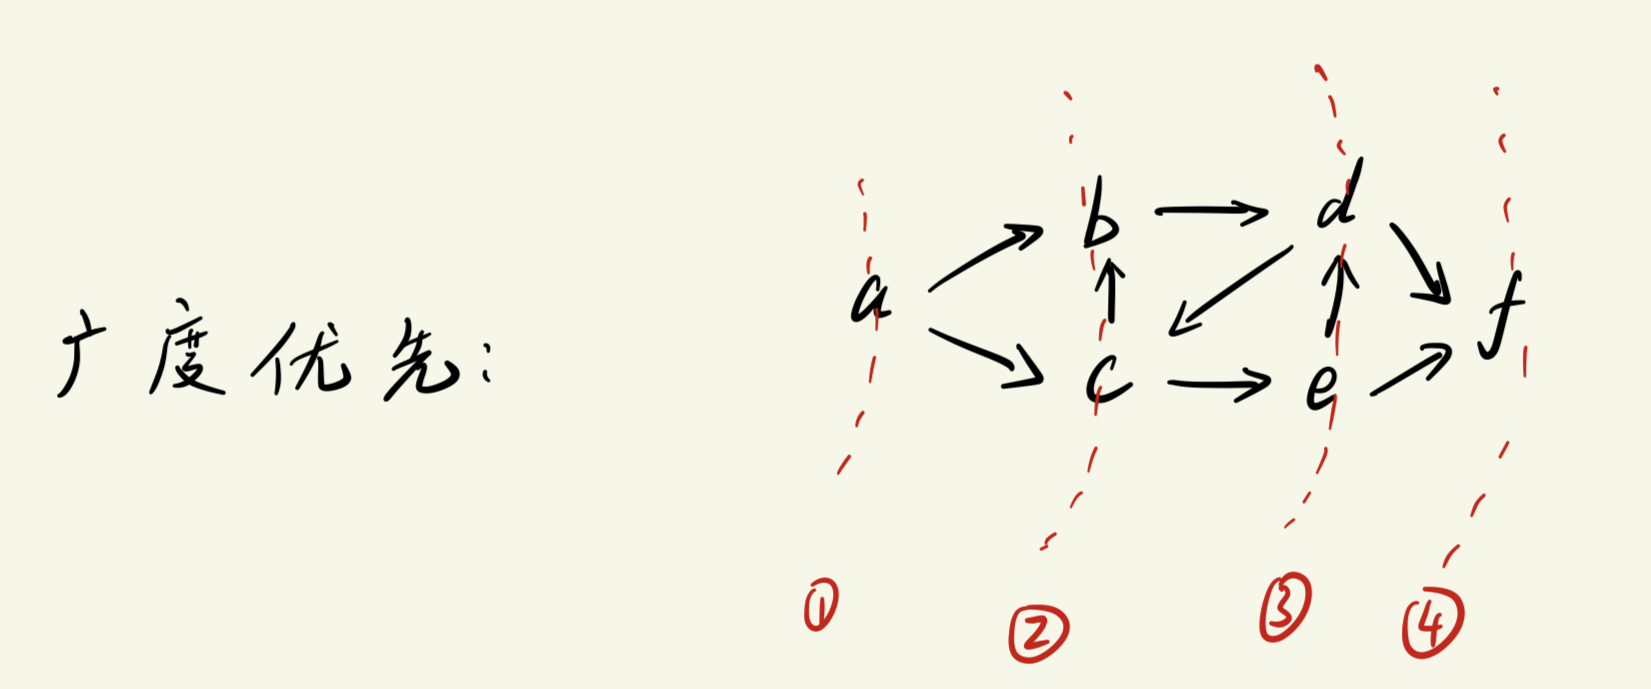 广度优先:
a b c d e f
① ② ③ ④